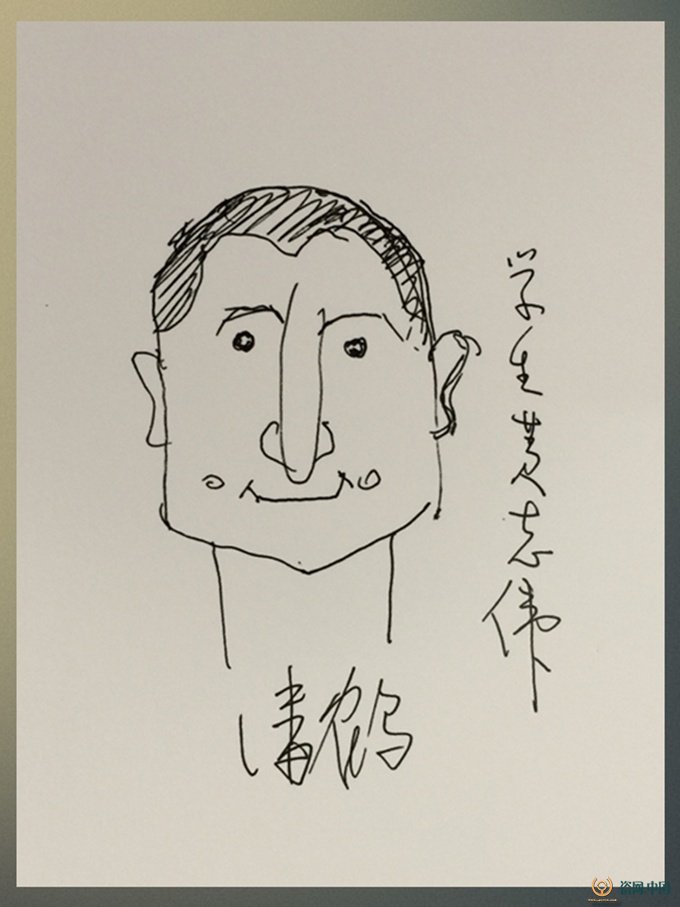 学生黄志伟
潘鹤
资网·中国